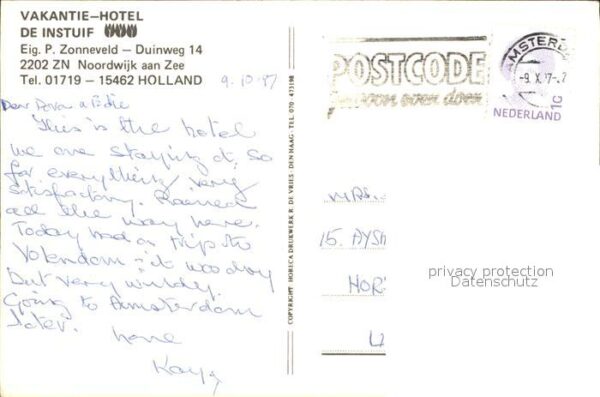 VAKANTIE-HOTEL
DE INSTUIF
Eig. P. Zonneveld – Duinweg 14
2202 ZN Noordwijk aan Zee
Tel. 01719 – 15462 HOLLAND
9.10.87
Dear
This is the hotel
we are staying at, so
far everything very
satisfactory. Rained
all the way here.
Today had a trip to
Volendam - it was dry
but very windy.
Going to Amsterdam
later.
Love
Kay
COPYRIGHT HORECA DRUKWERK R. DE VRIES, DEN HAAG, TEL. 070
POSTCODE
gewoon even doen
AMSTERDA
-9.X.
NEDERLAND
MRS.
15. AYSH
HOR
privacy protection
Datenschutz